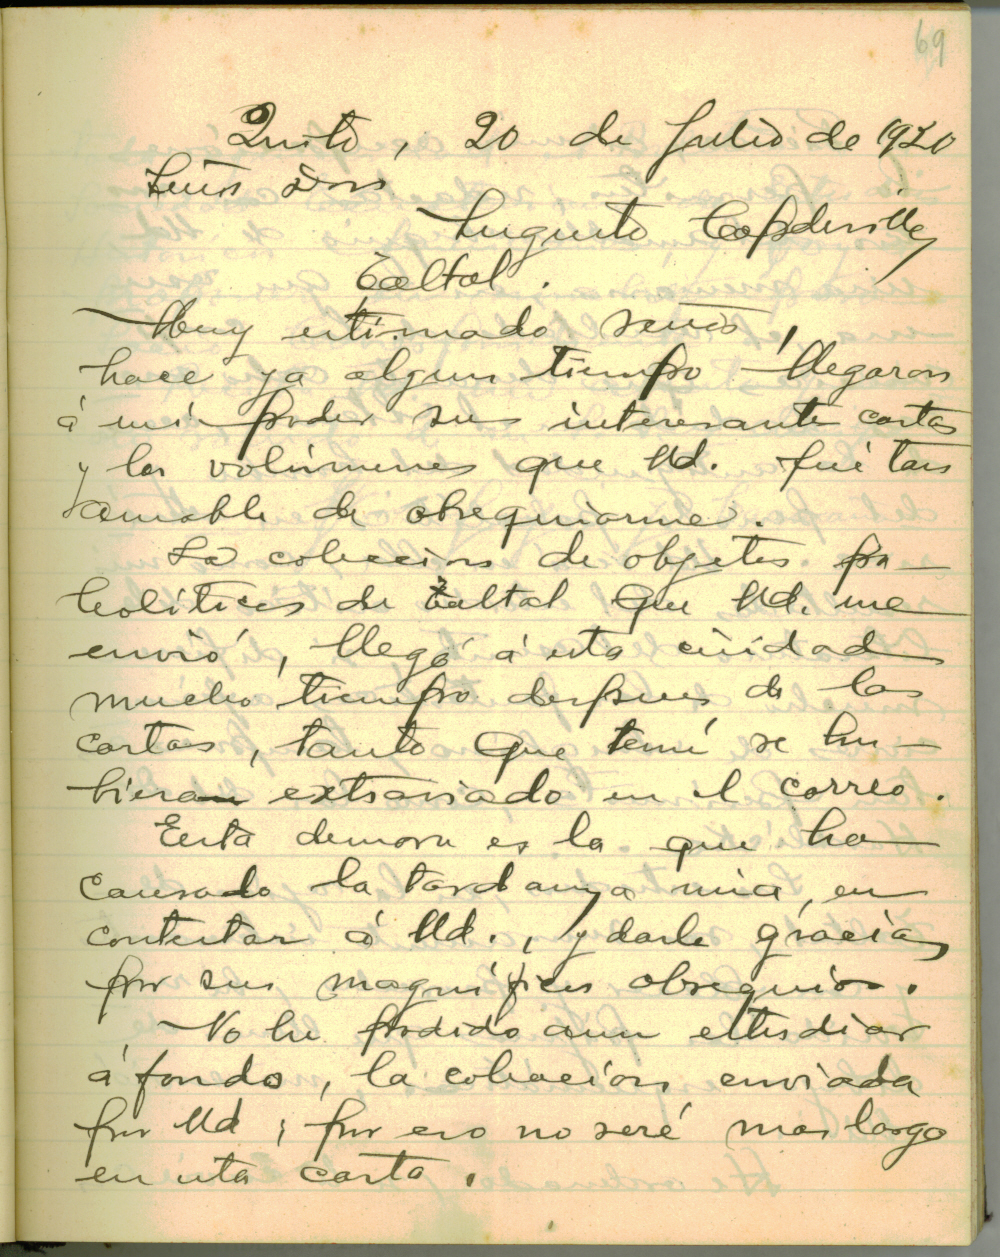 69
Quito, 20 de Julio de 1920
Señor Don
Augusto Capdeville
Taltal.
Muy estimado señor,
hace ya algun tiempo llegaron
á mi poder sus interesante cartas
y los volúmenes que Ud. fué tan
amable de obsequiarme.
La coleccion de objetos pa-
leolíticos de Taltal que Ud. me
envió, llegó á esta ciudad
mucho tiempo despues de las
cartas, tanto que temí se hu-
bieran extraviado en el correo.
Esta demora es la que ha
causado la tardanza mia, en
contestar á Ud., y darle gracias
por sus magníficos obsequios.
No he podido aun estudiar
á fondo, la coleccion enviada
por Ud; por eso no seré mas largo
en esta carta.